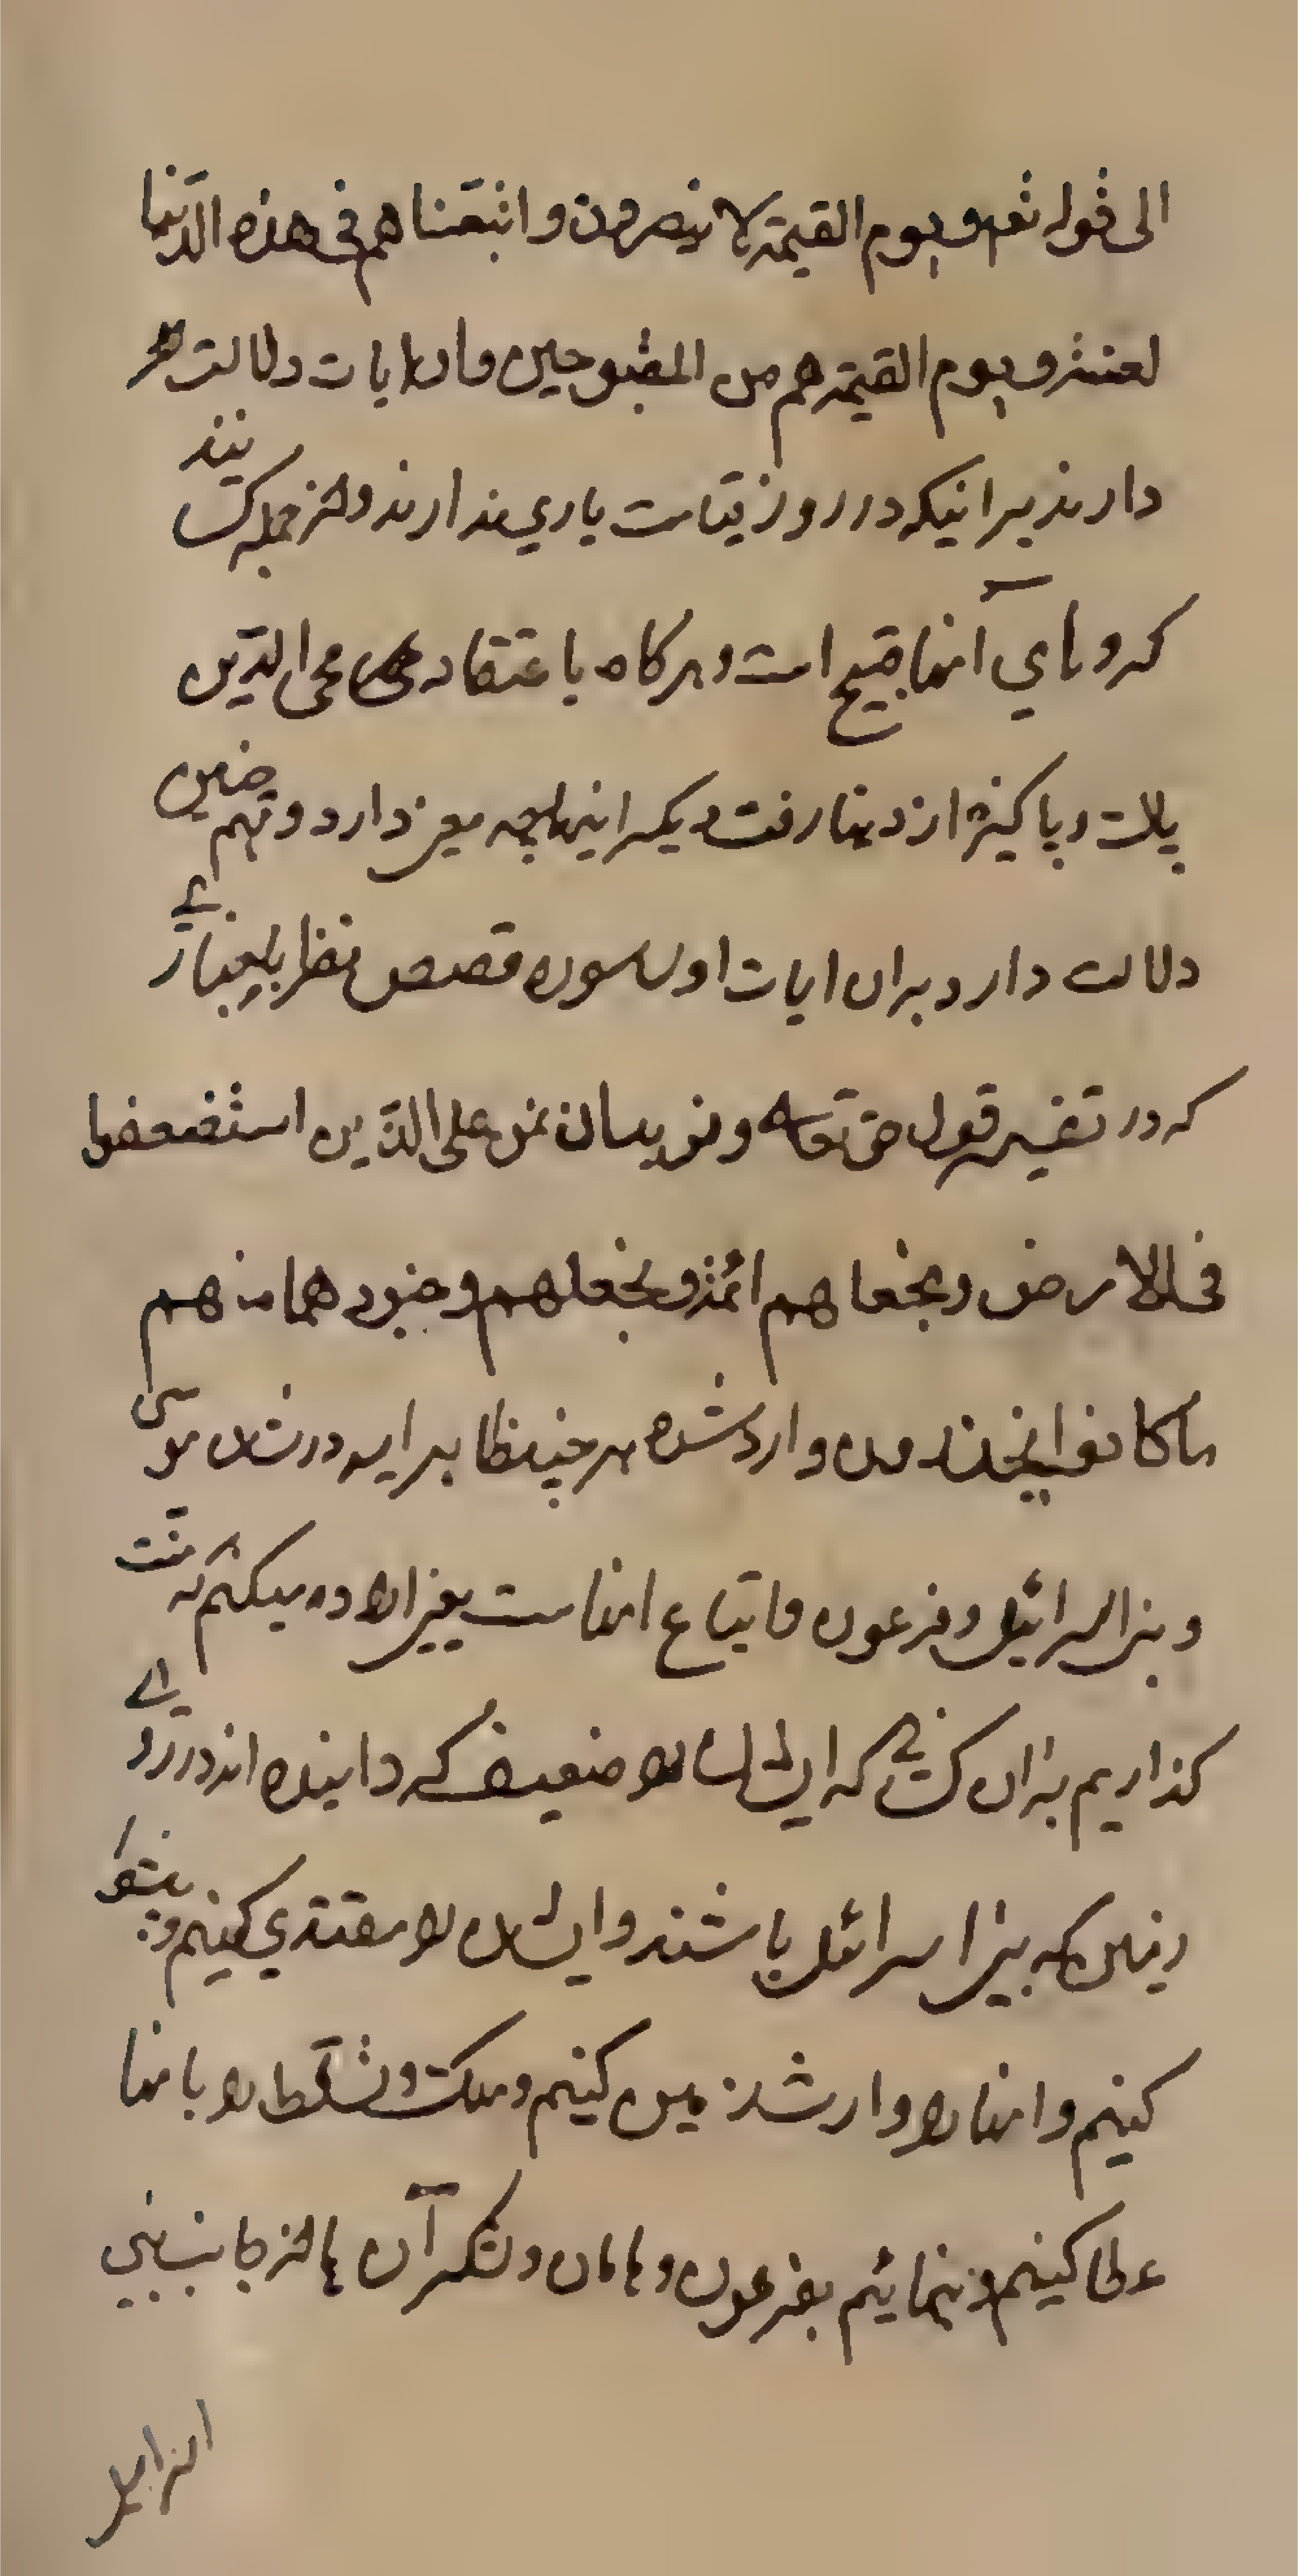 الی قوله تعم و یوم القیمة لا ینصرون و اتبعناهم فی هذه الدنیا
لعنة و یوم القیمة هم من المقبوحین و این ایات دلالت
دارند بر اینکه در روز قیامت یاری ندارند و از جمله کسانیند
که روهای آنها قبیح است و هرگاه باعتقاد محی الدین
پاک و پاکیزه از دنیا رفت دیگر اینها چه معنی دارد و همچنین
دلالت دارد بران ایات اول سوره قصص نظر باخباری
که در تفسیر قول حق تعالی و نرید ان نمن علی الذین استضعفوا
فی الارض و نجعلهم ائمة و نجعلهم و جنودهما منهم
ما کانوا یحذرون وارد شده هر چند ظاهر ایه در شان موسی
و بنی اسرائیل و فرعون و اتباع انهاست یعنی اراده میکنیم که منت
گذاریم بران کسانی که ایشان را ضعیف گردانیده اند در روی
زمین که بنی اسرائیل باشند و ایشان را مقتدی کنیم و پیشوا
کنیم و انها را وارث زمین کنیم و ملک و تسلط را بانها
عطا کنیم و بنمائیم بفرعون و هامان و لشکر آن ها از جانب بنی
اسرائیل